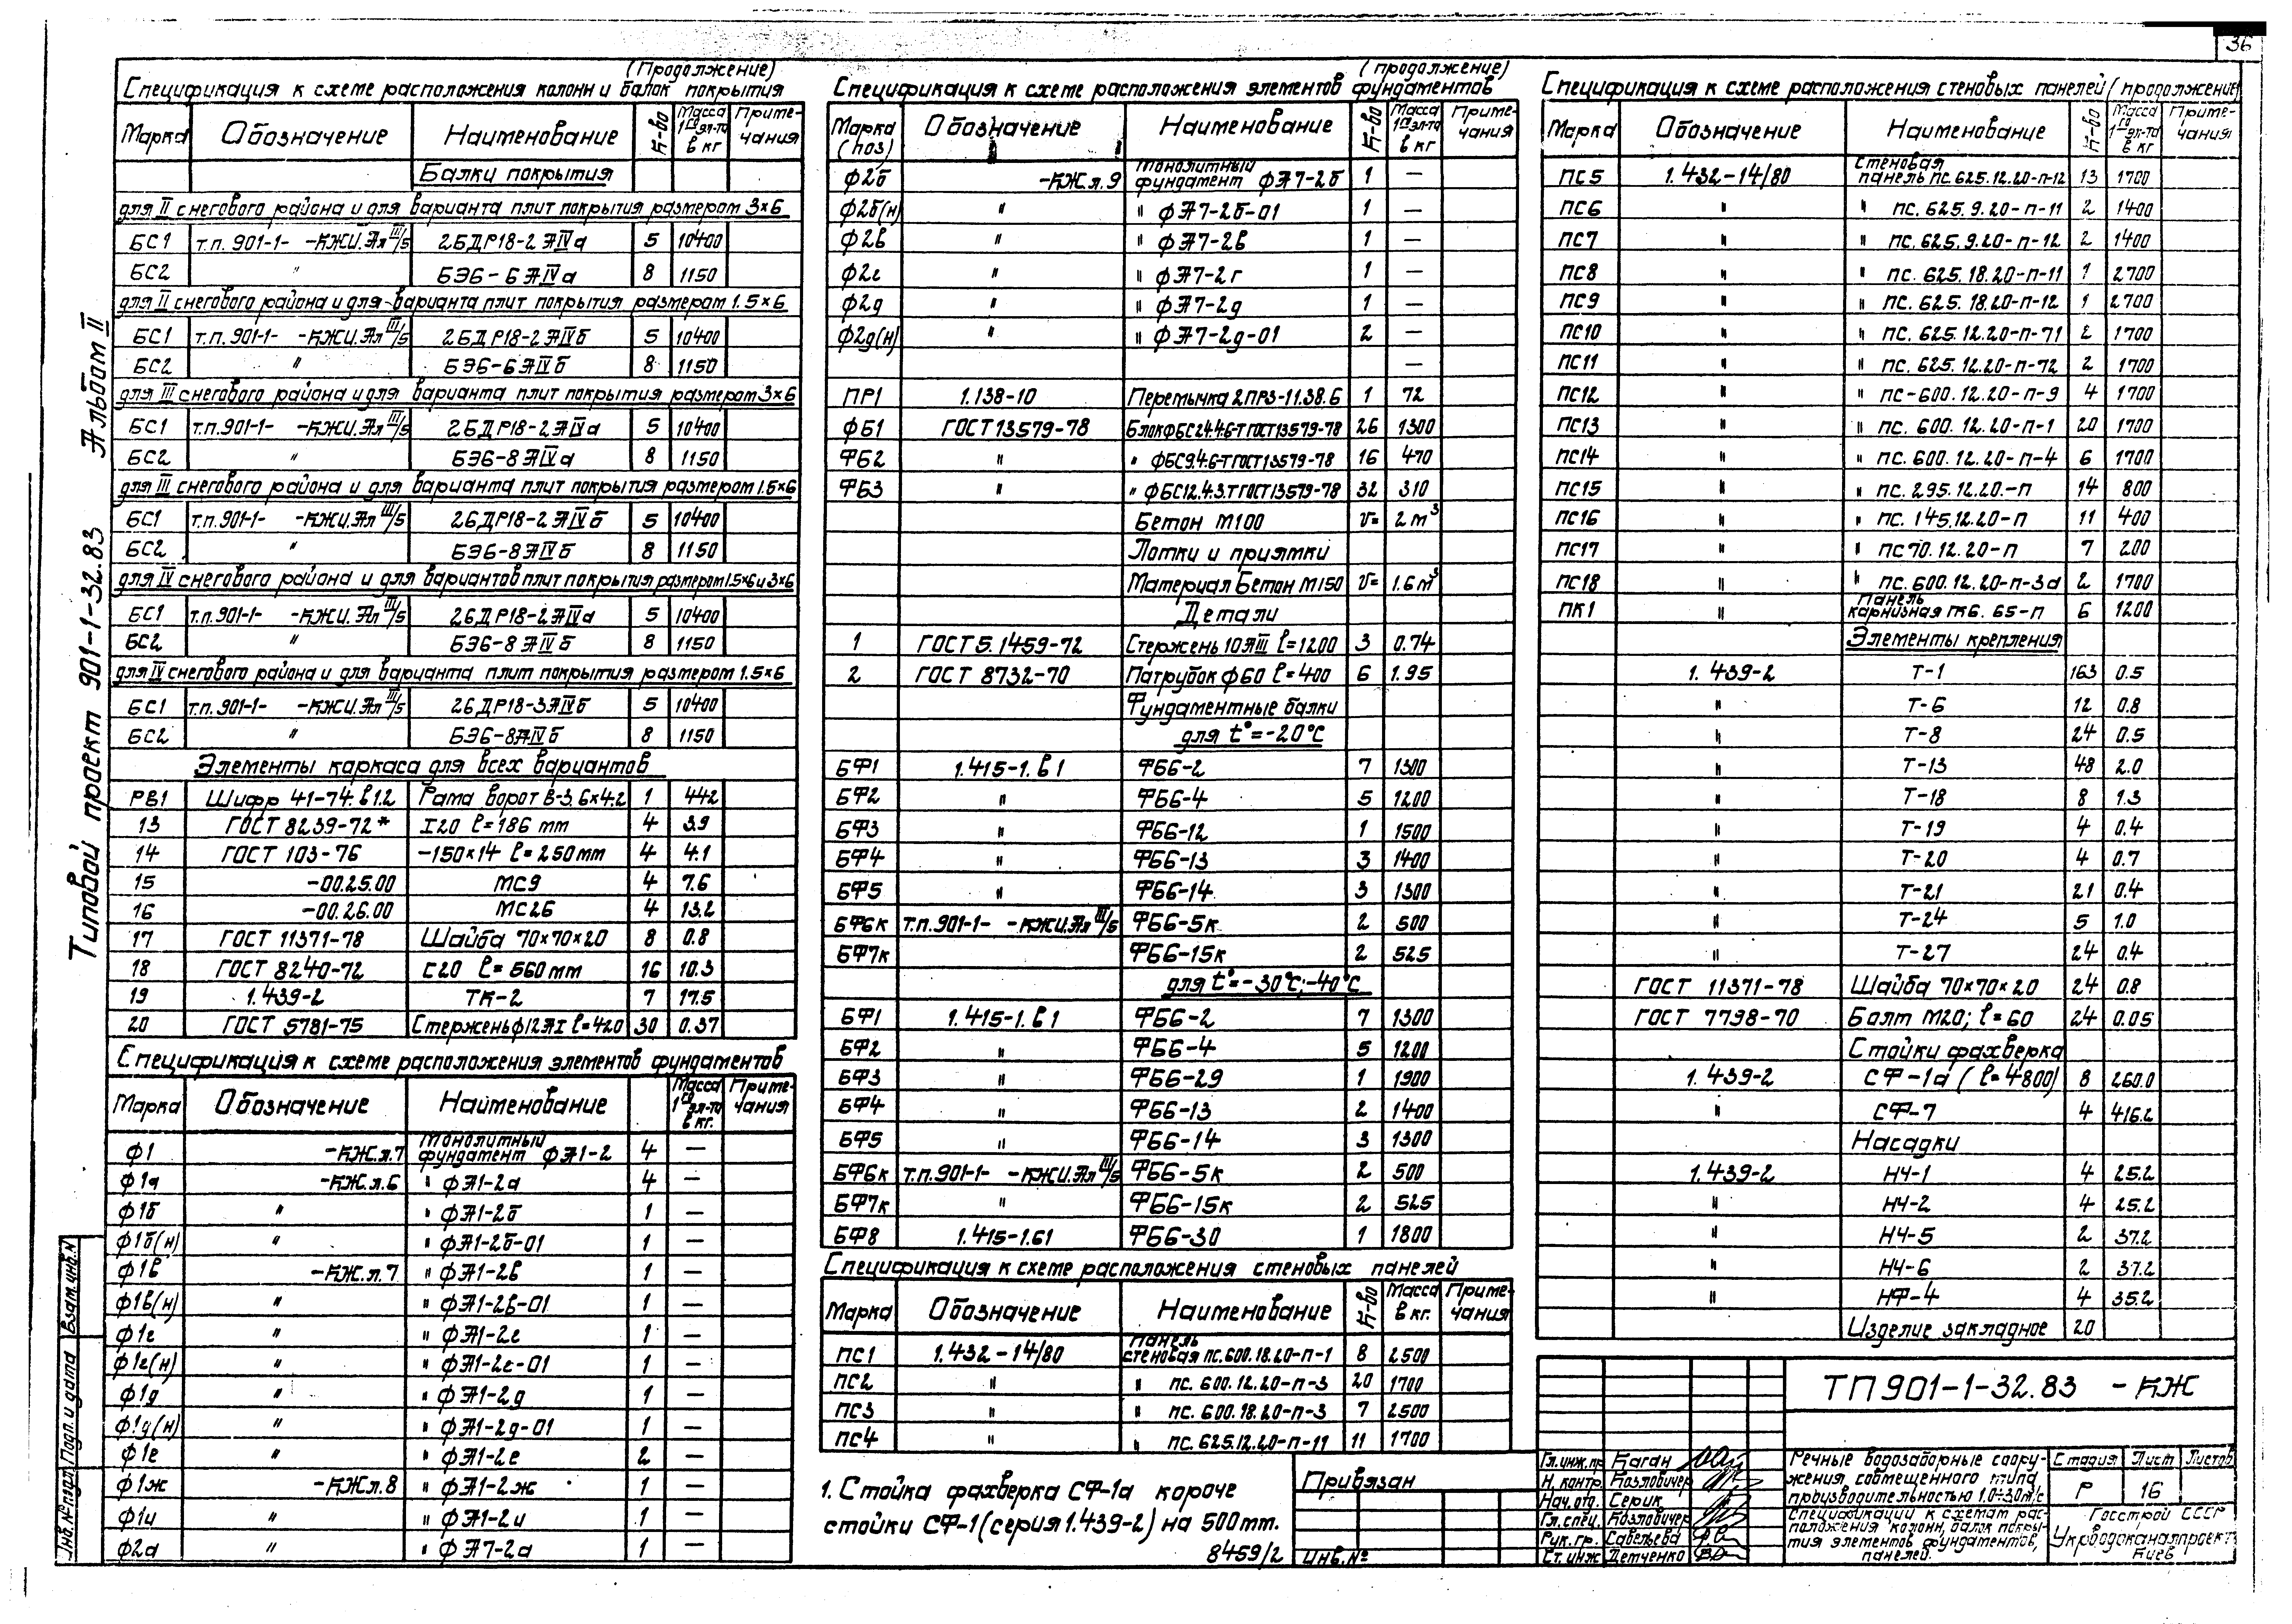 36
Типовой проект 901-1-32.83 Альбом II
Спецификация к схеме расположения колонн и балок покрытия (Продолжение)
Марка Обозначение Наименование К-во Масса 1го эл-та в кг Приме-чания
Балки покрытия
для II снегового района и для варианта плит покрытия размером 3×6
БС1 т.п. 901-1- -КЖИ.Ал III/5 2БДР18-2АIVа 5 10400
БС2 " БЭ6-6АIVа 8 1150
для II снегового района и для варианта плит покрытия размером 1.5×6
БС1 т.п. 901-1- -КЖИ.Ал III/5 2БДР18-2АIVб 5 10400
БС2 " БЭ6-6АIVб 8 1150
для III снегового района и для варианта плит покрытия размером 3×6
БС1 т.п.901-1- -КЖИ.Ал III/5 2БДР18-2АIVа 5 10400
БС2 " БЭ6-8АIVа 8 1150
для III снегового района и для варианта плит покрытия размером 1.5×6
БС1 т.п.901-1- -КЖИ.Ал III/5 2БДР18-2АIVб 5 10400
БС2 " БЭ6-8АIVб 8 1150
для IV снегового района и для вариантов плит покрытия размером 1.5×6 и 3×6
БС1 т.п.901-1- -КЖИ.Ал III/5 2БДР18-2АIVа 5 10400
БС2 " БЭ6-8АIVб 8 1150
для IV снегового района и для варианта плит покрытия размером 1.5×6
БС1 т.п.901-1- -КЖИ.Ал III/5 2БДР18-3АIVб 5 10400
БС2 " БЭ6-8АIVб 8 1150
Элементы каркаса для всех вариантов
РВ1 Шифр 41-74.в1.2 Рама ворот В-3.6×4.2 1 442
13 ГОСТ 8239-72* I20 ℓ=186 mm 4 3.9
14 ГОСТ 103-76 -150×14 ℓ=250mm 4 4.1
15 -00.25.00 МС9 4 7.6
16 -00.26.00 МС26 4 13.2
17 ГОСТ 11371-78 Шайба 70×70×20 8 0.8
18 ГОСТ 8240-72 С20 ℓ=560mm 16 10.3
19 1.439-2 ТК-2 7 17.5
20 ГОСТ 5781-75 Стержень ф12АI ℓ=420 30 0.37
Спецификация к схеме расположения элементов фундаментов
Марка Обозначение Наименование Масса 1го эл-та в кг. Приме-чания
Ф1 -КЖ.л.7 Монолитный фундамент ФА1-2 4 —
Ф1а -КЖ.л.6 " ФА1-2а 4 —
Ф1б " " ФА1-2б 1 —
Ф1б(н) " " ФА1-2б-01 1 —
Ф1в -КЖ.л.7 " ФА1-2в 1 —
Ф1в(н) " " ФА1-2в-01 1 —
Ф1г " " ФА1-2г 1 —
Ф1г(н) " " ФА1-2г-01 1 —
Ф1д " " ФА1-2д 1 —
Ф1д(н) " " ФА1-2д-01 1 —
Ф1е " " ФА1-2е 2 —
Ф1ж -КЖ.л.8 " ФА1-2ж 1 —
Ф1и " " ФА1-2и 1 —
Ф2а " " ФА7-2а 1 —
Спецификация к схеме расположения элементов фундаментов (продолжение)
Марка (поз) Обозначение Наименование К-во Масса 1го эл-та в кг Приме-чания
Ф2б -КЖ.л.9 Монолитный фундамент ФА7-2б 1 —
Ф2б(н) " " ФА7-2б-01 1 —
Ф2в " " ФА7-2в 1 —
Ф2г " " ФА7-2г 1 —
Ф2д " " ФА7-2д 1 —
Ф2д(н) " " ФА7-2д-01 2 —
—
ПР1 1.138-10 Перемычка 2ПР3-11.38.6 1 72
ФБ1 ГОСТ 13579-78 Блок ФБС24.4.6-Т ГОСТ13579-78 26 1300
ФБ2 " " ФБС9.4.6-Т ГОСТ13579-78 16 470
ФБ3 " " ФБС12.4.3.Т ГОСТ13579-78 32 310
Бетон М100 V= 2м³
Лотки и приямки
Материал Бетон М150 V= 1.6м³
Детали
1 ГОСТ 5.1459-72 Стержень 10АIII ℓ=1200 3 0.74
2 ГОСТ 8732-70 Патрубок ф60 ℓ=400 6 1.95
Фундаментные балки
для t°=-20°С
БФ1 1.415-1.в1 ФБ6-2 7 1300
БФ2 " ФБ6-4 5 1200
БФ3 " ФБ6-12 1 1500
БФ4 " ФБ6-13 3 1400
БФ5 " ФБ6-14 3 1300
БФ6к т.п.901-1- -КЖИ.Ал III/5 ФБ6-5к 2 500
БФ7к ФБ6-15к 2 525
для t°=-30°С;-40°С
БФ1 1.415-1.в1 ФБ6-2 7 1300
БФ2 " ФБ6-4 5 1200
БФ3 " ФБ6-29 1 1900
БФ4 " ФБ6-13 2 1400
БФ5 " ФБ6-14 3 1300
БФ6к т.п.901-1- -КЖИ.Ал III/5 ФБ6-5к 2 500
БФ7к " ФБ6-15к 2 525
БФ8 1.415-1.в1 ФБ6-30 1 1800
Спецификация к схеме расположения стеновых панелей
Марка Обозначение Наименование К-во Масса в кг. Приме-чания
ПС1 1.432-14/80 Панель стеновая пс.600.18.20-п-1 8 2500
ПС2 " " пс.600.12.20-п-3 20 1700
ПС3 " " пс.600.18.20-п-3 7 2500
ПС4 " " пс.625.12.20-п-11 11 1700
1. Стойка фахверка СФ-1а короче
стойки СФ-1(серия 1.439-2) на 500mm.
8459/2
Спецификация к схеме расположения стеновых панелей (продолжение)
Марка Обозначение Наименование К-во Масса 1го эл-та в кг Приме-чания
ПС5 1.432-14/80 Стеновая панель пс.625.12.20-п-12 13 1700
ПС6 " " пс.625.9.20-п-11 2 1400
ПС7 " " пс.625.9.20-п-12 2 1400
ПС8 " " пс.625.18.20-п-11 1 2700
ПС9 " " пс.625.18.20-п-12 1 2700
ПС10 " " пс.625.12.20-п-71 2 1700
ПС11 " " пс.625.12.20-п-72 2 1700
ПС12 " " пс-600.12.20-п-9 4 1700
ПС13 " " пс.600.12.20-п-1 20 1700
ПС14 " " пс.600.12.20-п-4 6 1700
ПС15 " " пс.295.12.20.-п 14 800
ПС16 " " пс.145.12.20-п 11 400
ПС17 " " пс70.12.20-п 7 200
ПС18 " " пс.600.12.20-п-3а 2 1700
ПК1 " Панель карнизная ПК6.65-п 6 1200
Элементы крепления
1.439-2 Т-1 163 0.5
" Т-6 12 0.8
" Т-8 24 0.5
" Т-13 48 2.0
" Т-18 8 1.3
" Т-19 4 0.4
" Т-20 4 0.7
" Т-21 21 0.4
" Т-24 5 1.0
" Т-27 24 0.4
ГОСТ 11371-78 Шайба 70×70×20 24 0.8
ГОСТ 7798-70 Болт М20; ℓ=60 24 0.05
Стойки фахверка
1.439-2 СФ-1а (ℓ=4800) 8 260.0
" СФ-7 4 416.2
Насадки
1.439-2 НЧ-1 4 25.2
" НЧ-2 4 25.2
" НЧ-5 2 37.2
" НЧ-6 2 37.2
" НФ-4 4 35.2
Изделие закладное 20
Привязан
Инв.№
ТП901-1-32.83 -КЖ
Гл.инж.пр Каган
Н.контр. Козловичер
Нач.отд. Серик
Гл.спец. Козловичер
Рук.гр. Савельева
Ст.инж Детченко
Речные водозаборные соору-
жения совмещенного типа
производительностью 1.0÷3.0м³/с
Спецификации к схемам рас-
положения колонн, балок покры-
тия элементов фундаментов,
панелей.
Стадия Лист Листов
Р 16
Госстрой СССР
Укрводоканалпроект
Киев
Взам.инв.№
Подп. и дата
Инв.№ подл.